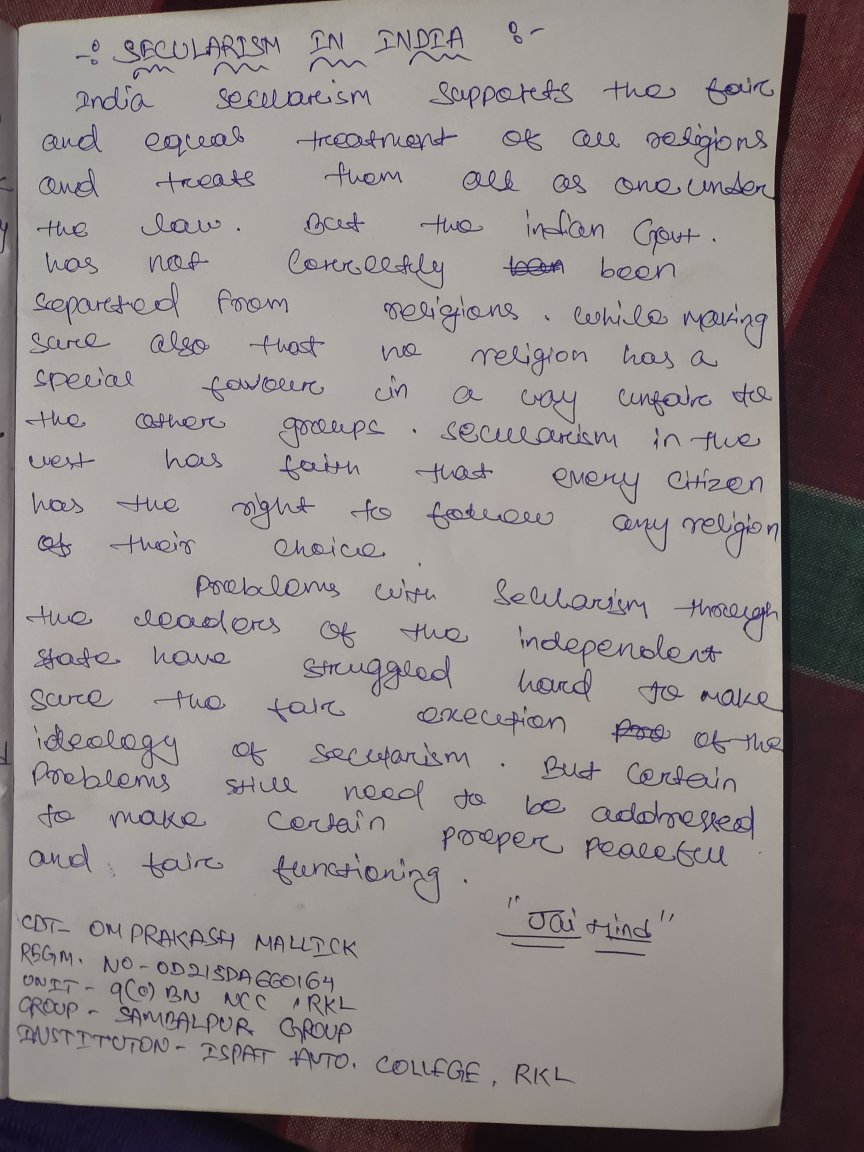 -: SECULARISM IN INDIA :-
India secularism supports the fair
and equal treatment of all religions
and treats them all as one under
the law. But the indian Govt.
has not correctly been
separeted from religions. while making
sure also that no religion has a
special favour in a way unfair to
the other groups. secularism in the
west has faith that every citizen
has the right to follow any religion
of their choice.
Problems with secularism through
the leaders of the independent
state have struggled hard to make
sure the fair execution of the
ideology of secularism. But certain
problems still need to be addressed
to make certain proper peaceful
and fair functioning.
"Jai Hind"
CDT- OM PRAKASH MALLICK
REGM. NO - OD21SDA660164
UNIT - 9(O) BN NCC, RKL
GROUP - SAMBALPUR GROUP
INSTITUTON - ISPAT AUTO. COLLEGE, RKL